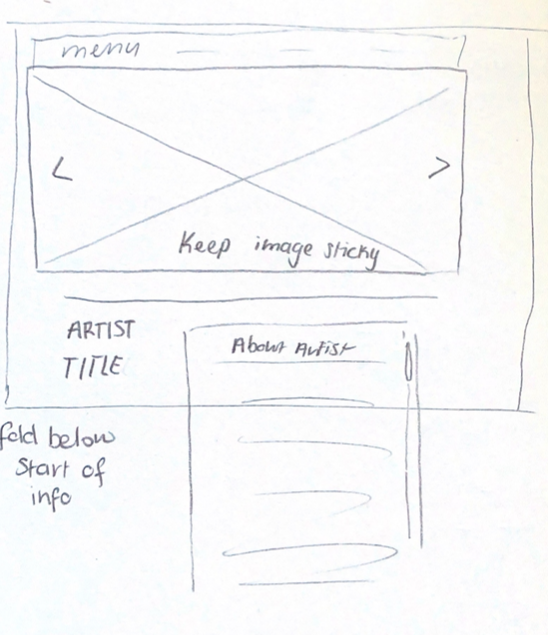 menu
<
>
Keep image sticky
ARTIST
TITLE
About Artist
fold below
start of
info